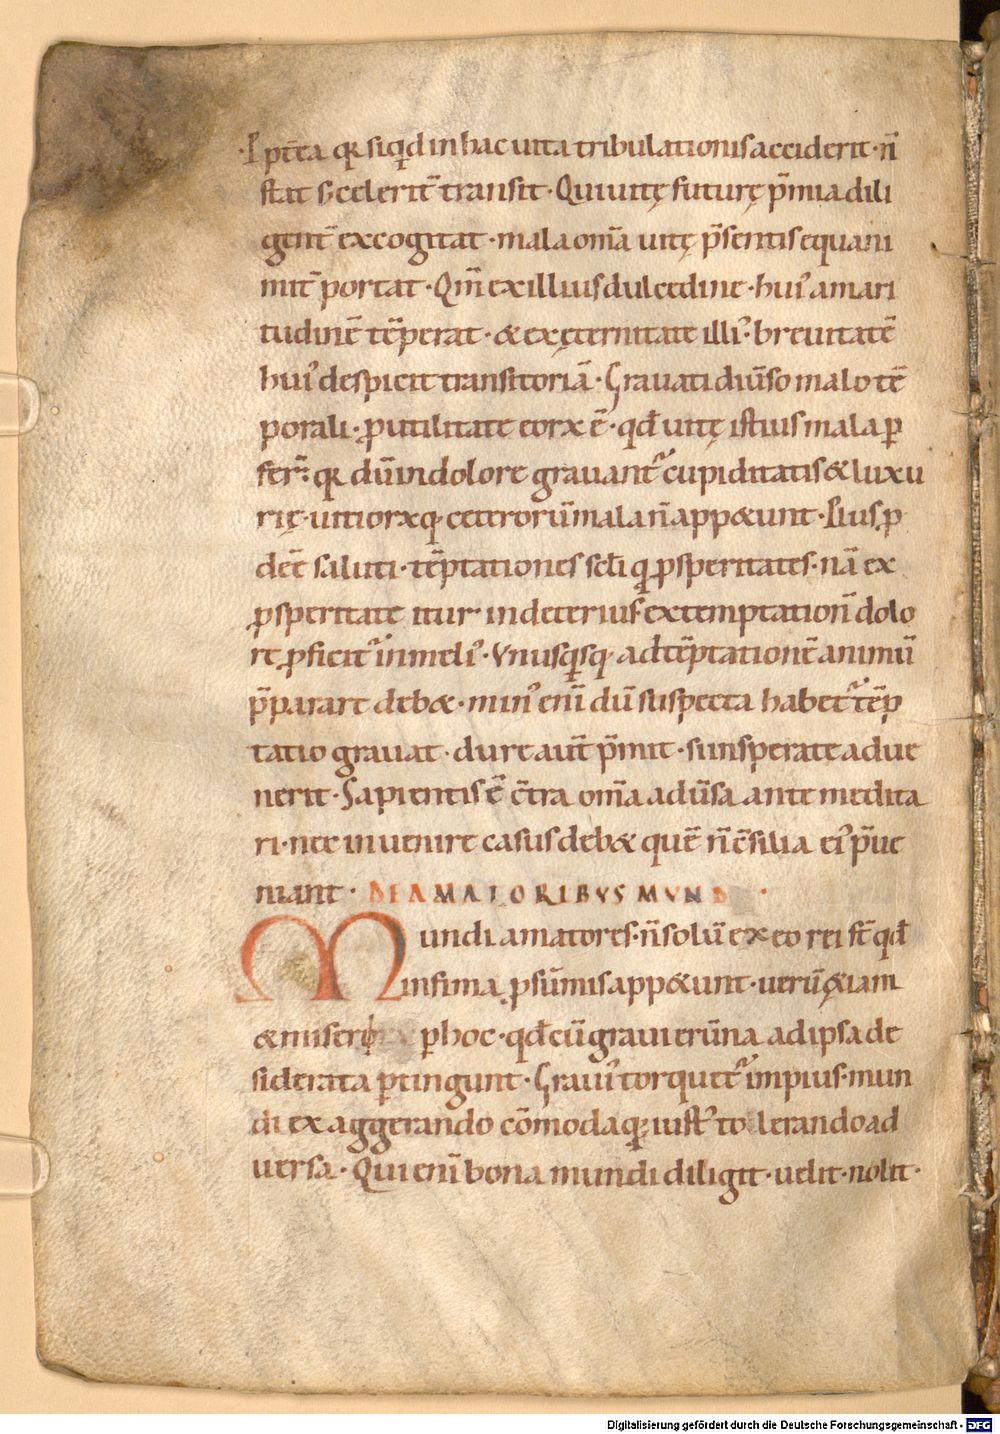 ·I ptēa qꝛ siq̇d in hac uita tribulationis acciderit· n̄
stat s; celerit̄ transit· Qui uitę futurę p̄mia dili
gent̄ excogitat· mala om̄a uitę p̄sentis equani
mit̄ portat· Qm̄ ex illius dulcedine· hui᾽ amari
tudinē tēperat· & ex ęternitate illi᾽· breuitatē
hui᾽ despicit transitoriā· Grauati diūso malo tē
porali· ꝓ utilitate eorꝝ ē· qđ uitę istius mala ꝑ
fer̄· qꝛ dū in dolore grauant᾽ cupiditatis & luxu
rię· uitiorꝝq; ceterorū mala n̄ app&unt· Pius ꝓ
dēt saluti· tēptationes sc̄li q̇ ꝓsperitates· nā ex
ꝓsperitate itur in deterius· ex temptation̄ dolo
re ꝓficit᾽ in meli᾽· Vnusq̇sq; ad tēptationē animū
p̄parare deb&· min᾽ enī dū suspecta habet᾽ tēp
tatio grauat· dure aut̄ p̄mit· si insperate adue
nerit· Sapientis ē c̄tra om̄a adūsa ante medita
ri· nec inuenire casus deb& quē n̄ c̄silia ei᾽ p̄ue
niant· DE AMATORIBVS MVND
Mundi amatores· n̄ solū ex eo rei st̄ qđ
infima ꝓ sūmis app&unt· uerū &iam
& miseri ꝑ hoc· qđ cū graui erūna ad ipsa de
siderata ꝑtingunt· Graui᾽ torquet᾽ impius· mun
di exaggerando cōmoda quā iust᾽ tolerando ad
uersa· Qui enī bona mundi diligit· uelit· nolit·
Digitalisierung gefördert durch die Deutsche Forschungsgemeinschaft - DFG